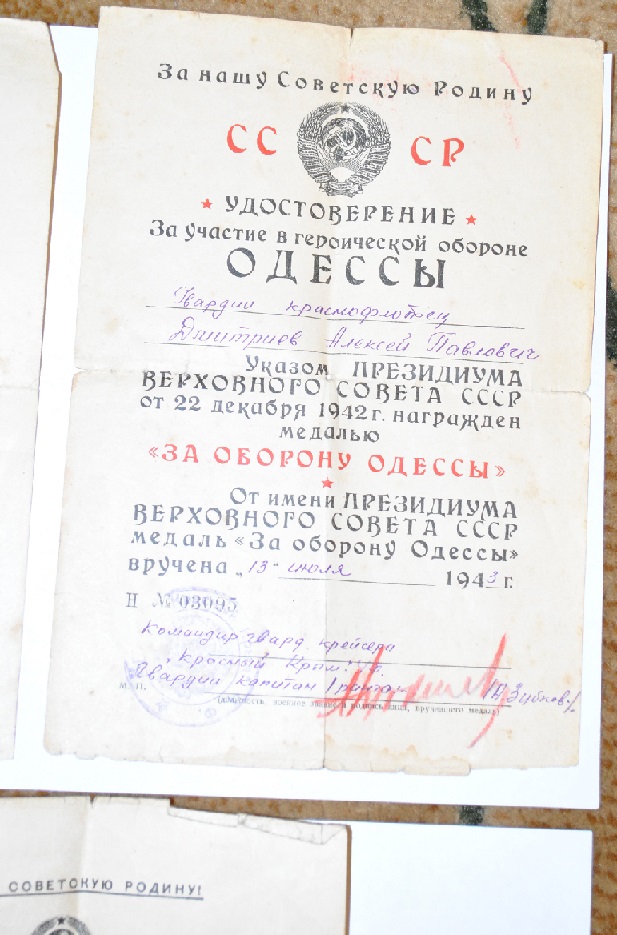 За нашу Советскую Родину
СССР
УДОСТОВЕРЕНИЕ
За участие в героической обороне
ОДЕССЫ
Гвардии краснофлотец
Дмитриев Алексей Павлович
Указом ПРЕЗИДИУМА
ВЕРХОВНОГО СОВЕТА СССР
от 22 декабря 1942 г. награжден
медалью
«ЗА ОБОРОНУ ОДЕССЫ»
От имени ПРЕЗИДИУМА
ВЕРХОВНОГО СОВЕТА СССР
медаль «За оборону Одессы»
вручена „13" июля 1943 г.
II № 03095
Командир гвард. крейсера
„Красный Крым"
Гвардии капитан I ранга
/Зубков/
М. П.
СОВЕТСКУЮ РОДИНУ!